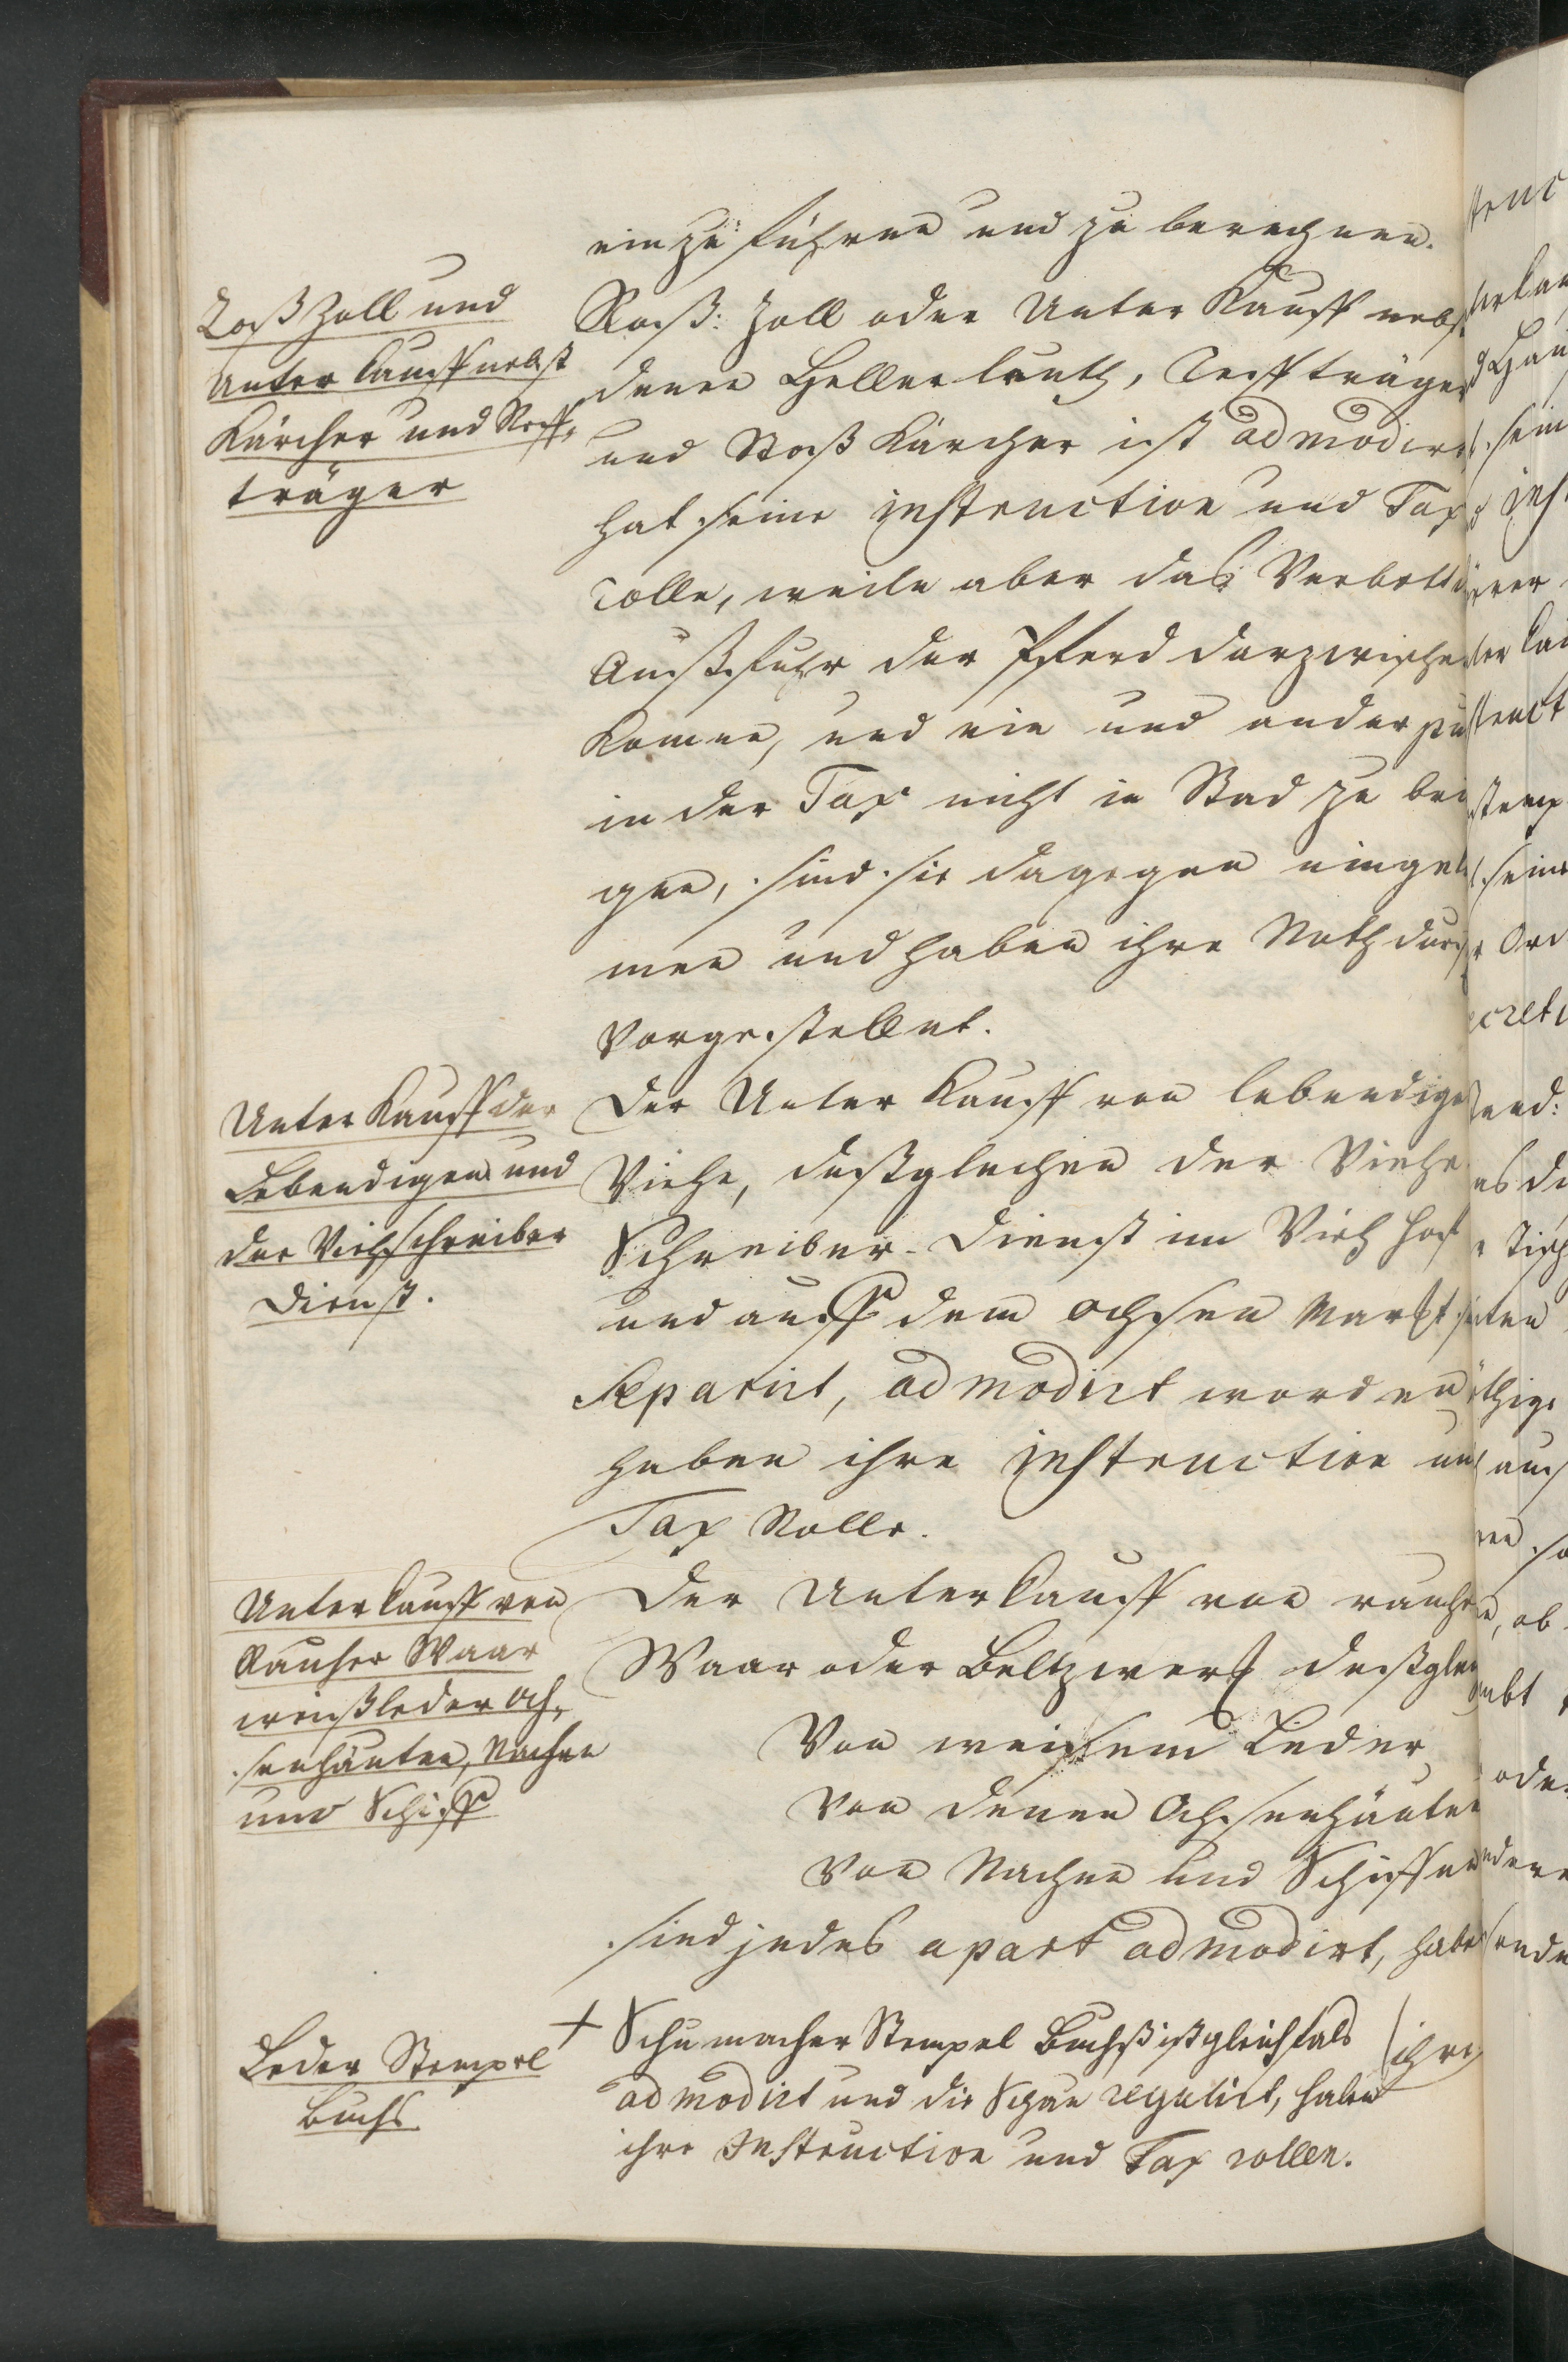 ein zu führen und zu berechnen.
Roß Zoll und
Unter Kauff nebst
Kärcher und Reff,
träger
Roß: Zoll oder Unter Kauff nebst
denen Hellerleuth, Reffträger
und Roß Kärcher ist admodirt
hat seine instruction und Tax
rolle, weile aber das Verbott
Außfuhr der Pferd darzwischen
Komen, und ein und ander
in der Tax nicht in Stad zu brin
gen, sind sie dagegen
men und haben ihre Nothdurfft
vorgestellet.
Unter Kauff der
Lebendigen und
der Viehschreiber
Dienst.
Der Unter Kauff von lebendige
Viehe, deßgleichen der Viehe
Schreiber-Dienst im Vieh Hoff
und auff dem ochsen Marckt
separirt, admodirt worden
haben ihre instruction und
Tax Rolle.
Unterkauff von
Rauher Waar
weißleder Och,
senhäuten, Nachen
und Schiff
Der Unterkauff von rauher
Waar oder Beltzwerk deßglei
Von weissem Leder
Von denen Ochsenhäuten
Von Nachen und Schiffen
sind jedes apart admodirt, haben
Leder Stempel
Buchs
+ Schumacher Stempel Buchß ist gleichfals
admodirt und die Schau regulirt, haben
ihre Instruction und Tax rollen.
ihre